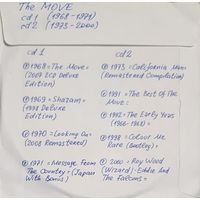 The MOVE
cd 1 (1968-1971)
cd 2 (1973-2000)
cd 1
① 1968 = The Move =
(2007 2CD Deluxe
Edition)
② 1969 = Shazam =
(1998 Deluxe
Edition)
③ 1970 = Looking On =
(2008 Remastered)
④ 1971 = Message From
The Country = (Japan
With Bonus)
cd 2
① 1973 = California Man
(Remastered Compilation)
② 1991 = The Best Of The
Move =
③ 1992 = The Early Years
(1966-1968) =
④ 1998 = Colour Me
Rare (Bootleg) =
⑤ 2000 = Roy Wood
(Wizzard): Eddie And
The Falcons =